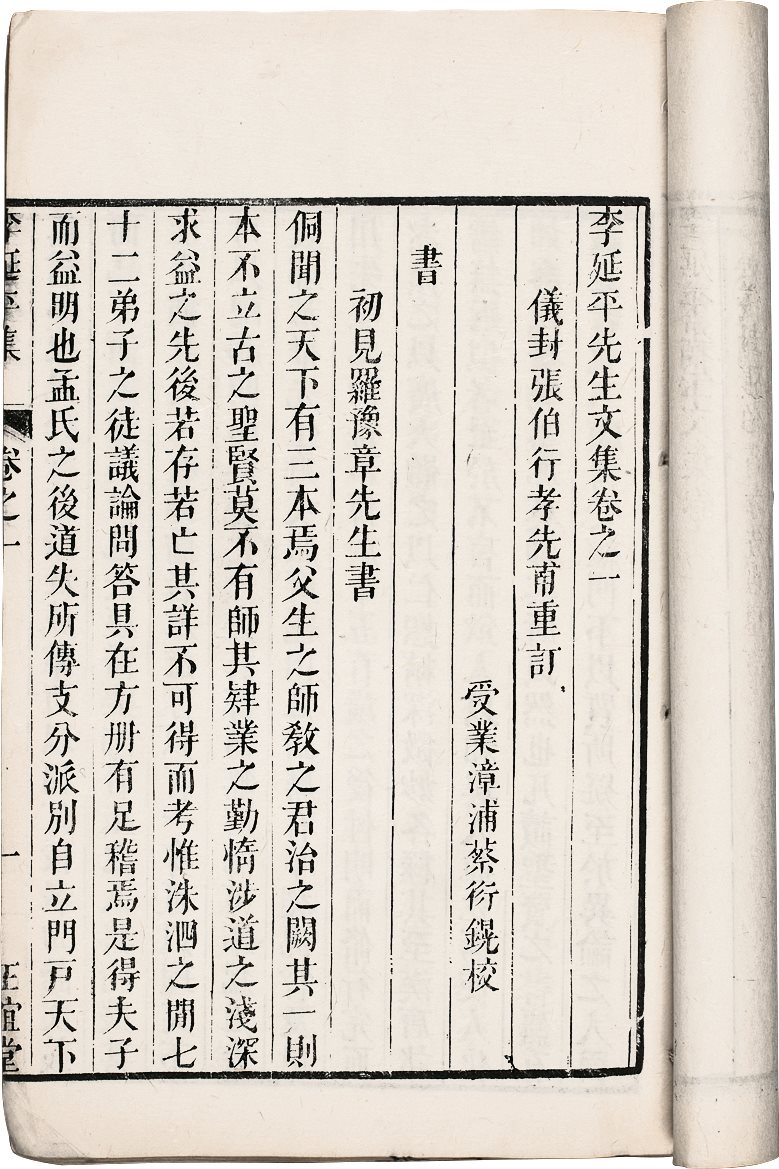 李延平先生文集卷之一
儀封張伯行孝先甫重訂
受業漳浦蔡衍鎤校
書
初見羅豫章先生書
侗聞之天下有三本焉父生之師教之君治之闕其一則
本不立古之聖賢莫不有師其肄業之勤惰涉道之淺深
求益之先後若存若亡其詳不可得而考惟洙泗之間七
十二弟子之徒議論問答具在方冊有足稽焉是得夫子
而益明也孟氏之後道失所傳支分派別自立門戶天下
李延平集 卷之一 一 正誼堂